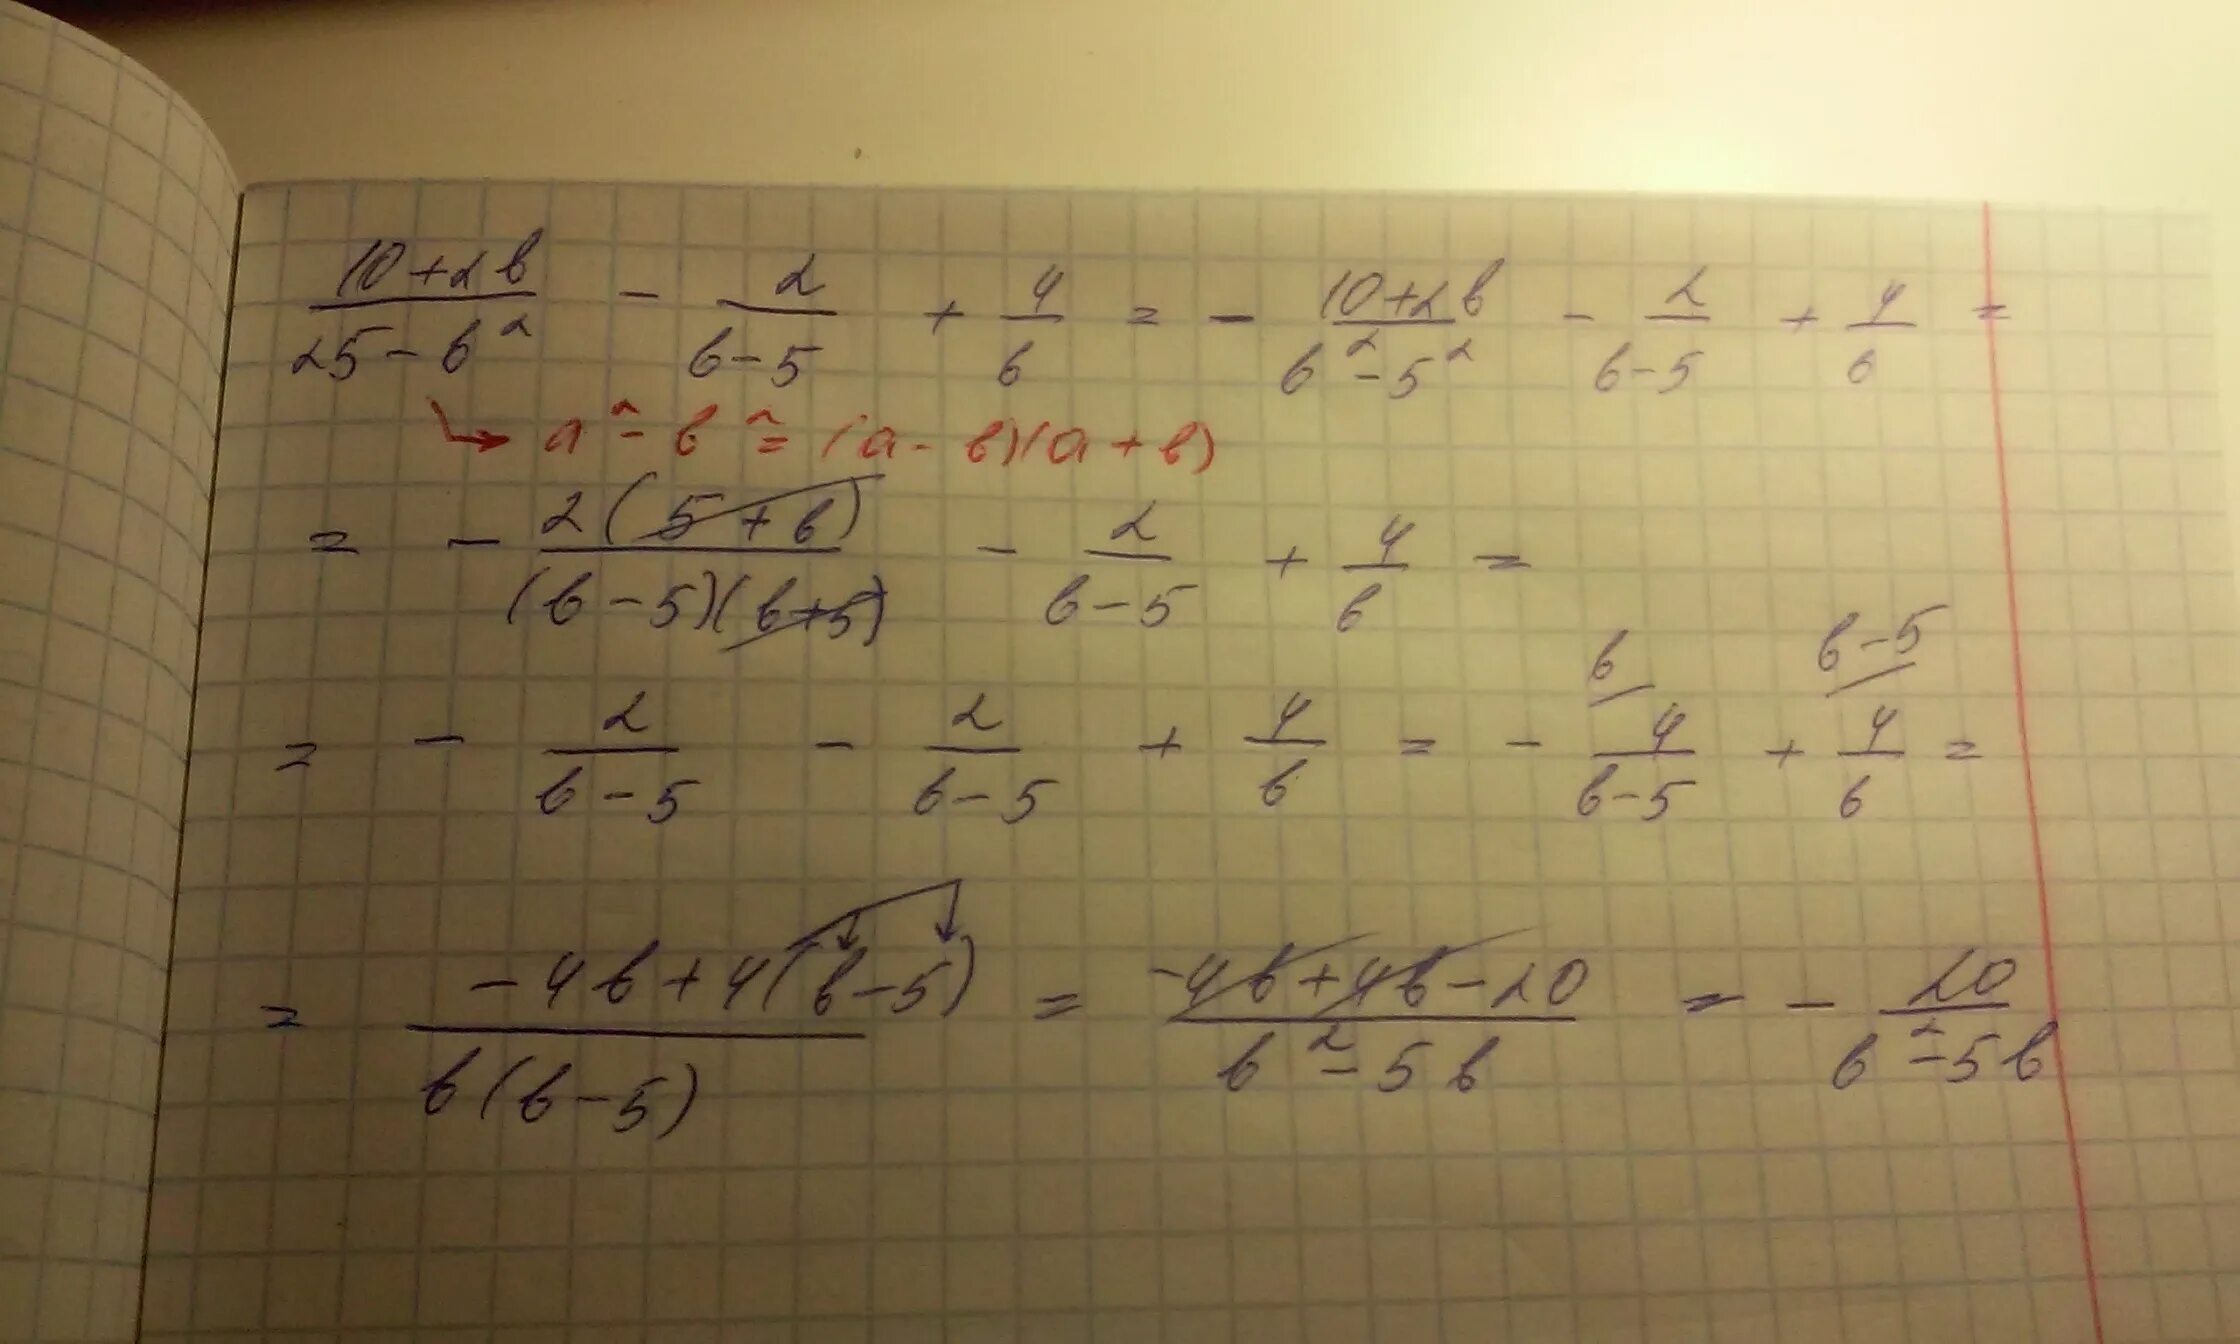 (10+2b)/(25-b²) - 2/(b-5) + 4/b = - (10+2b)/(b²-5²) - 2/(b-5) + 4/b =
a²-b²=(a-b)(a+b)
= - 2(5+b)/((b-5)(b+5)) - 2/(b-5) + 4/b =
b b-5
= - 2/(b-5) - 2/(b-5) + 4/b = - 4/(b-5) + 4/b =
= (-4b+4(b-5))/(b(b-5)) = (-4b+4b-20)/(b²-5b) = - 20/(b²-5b)